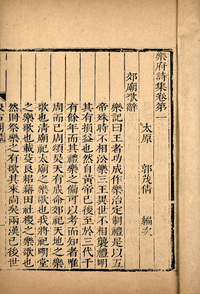 樂府詩集卷第一
太原 郭茂倩 編次
郊廟歌辭
樂記曰王者功成作樂治定制禮是以五
帝殊時不相沿樂三王異世不相襲禮明
其有損益然自黃帝已後至於三代千
有餘年而其禮樂之備可以考而知者唯
周而已周頌昊天有成命郊祀天地之樂
歌也清廟祀太廟之樂歌也我將祀明堂
之樂歌也載芟良耜藉田社稷之樂歌也
然則祭樂之有歌其來尚矣兩漢已後世